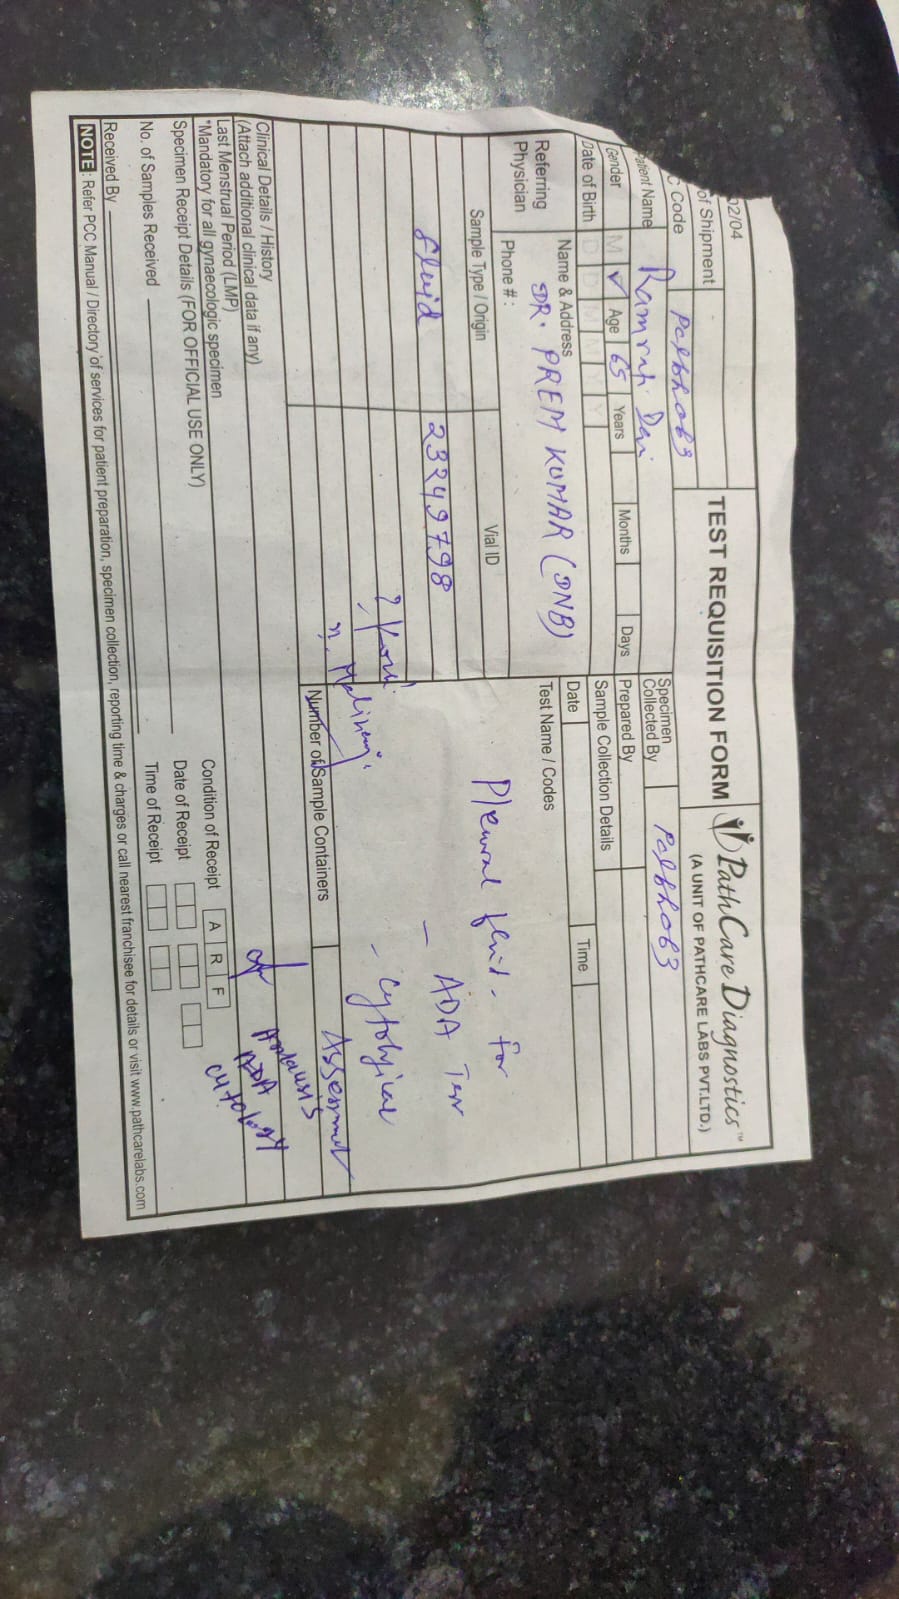 02/04
of Shipment
TEST REQUISITION FORM
PathCare Diagnostics™
(A UNIT OF PATHCARE LABS PVT.LTD.)
C Code
Patient Name
Gender M Age 65 Years Months Days
Date of Birth D D M M Y Y
Specimen
Collected By
Prepared By
Sample Collection Details
Date Time
Referring
Physician
Name & Address
DR. PREM KUMAR (DNB)
Phone # :
Test Name / Codes
Sample Type / Origin Vial ID
fluid 23249798
Pleural fluid - for
- ADA Test
- Cytological
Assessment
Number of Sample Containers
Clinical Details / History
(Attach additional clinical data if any)
Last Menstrual Period (LMP)
*Mandatory for all gynaecologic specimen
ADA
cytology
Specimen Receipt Details (FOR OFFICIAL USE ONLY)
Condition of Receipt A R F
No. of Samples Received
Date of Receipt
Received By
Time of Receipt
NOTE : Refer PCC Manual / Directory of services for patient preparation, specimen collection, reporting time & charges or call nearest franchisee for details or visit www.pathcarelabs.com